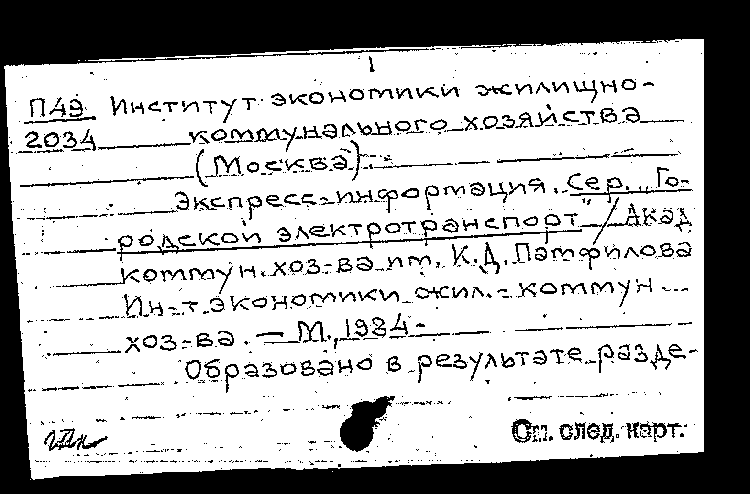 1
П49 Институт экономики жилищно-
2034 коммунального хозяйства
(Москва).
Экспресс-информация. Сер. "Го-
родской электротранспорт" / Акад
коммун. хоз-ва им. К.Д. Памфилова
Ин-т экономики жил.-коммун
хоз-ва. — М., 1984-
Образовано в результате разде-
См. след. карт.